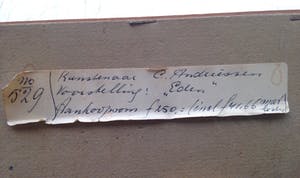 No 529
Kunstenaar C. Andriessen
Voorstelling: "Eden"
Aankoopsom f 250.-